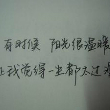 有时候 阳光很温暖
让我觉得一生都不过如